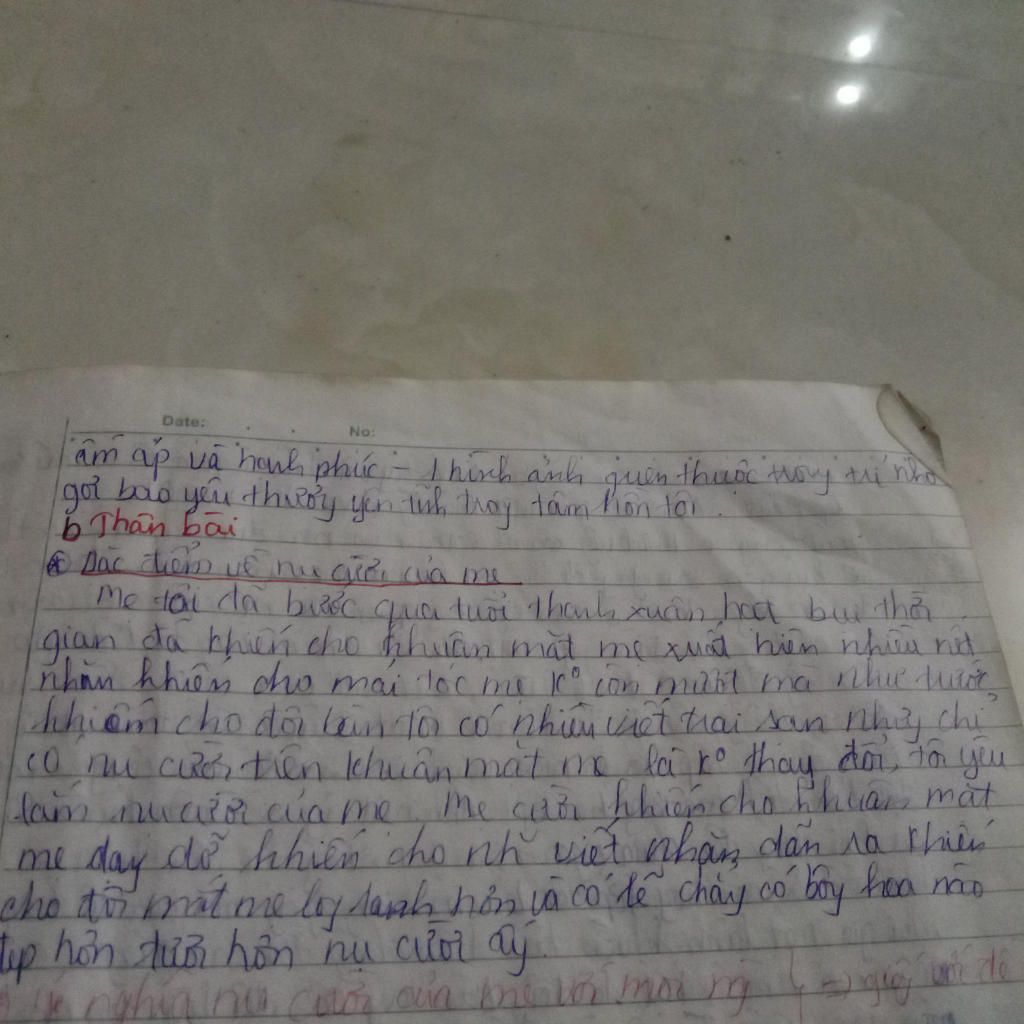 Date: No:
ấm áp và hạnh phúc - 1 hình ảnh quen thuộc trong trí nhớ
gợi bao yêu thương yên tĩnh trong tâm hồn tôi.
b Thân bài
Đặc điểm về nụ cười của mẹ
Mẹ tôi đã bước qua tuổi thanh xuân, bụi thời
gian đã khiến cho khuôn mặt mẹ xuất hiện nhiều nét
nhăn khiến cho mái tóc mẹ ko còn mượt mà như trước,
khiến cho đôi tôi có nhiều vết trai sạn nhưng chỉ
có nụ cười trên khuôn mặt mẹ là ko thay đổi, tôi yêu
lắm nụ cười của mẹ. Mẹ cười khiến cho khuôn mặt
mẹ khiến cho nh~ viết nhăn dãn ra khiến
cho đôi mắt mẹ hơn và có lẽ chẳng có bông hoa nào
đẹp hơn tươi hơn nụ cười ấy.
nghĩa nụ cười của mẹ với mọi ng =>